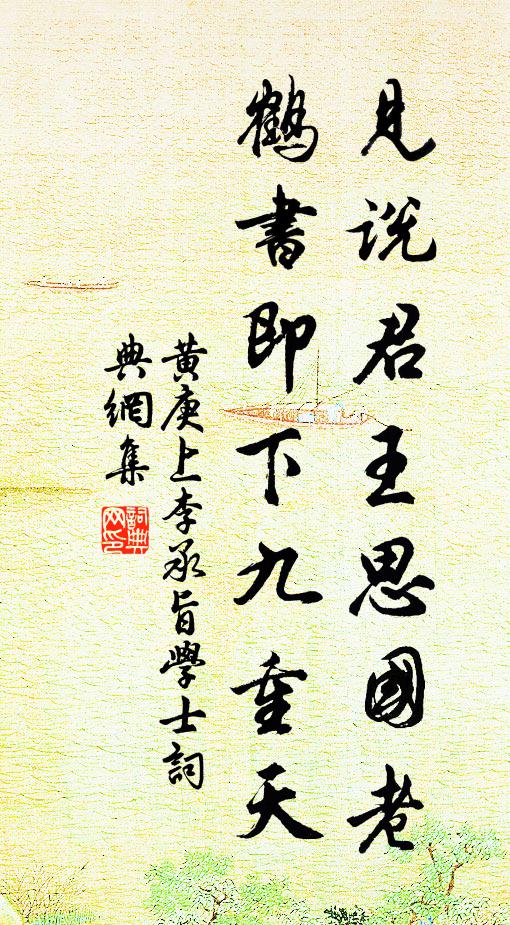 見說君王思國老
鶴書即下九重天
黄庚上李承旨學士詞
典網集
詞典網印